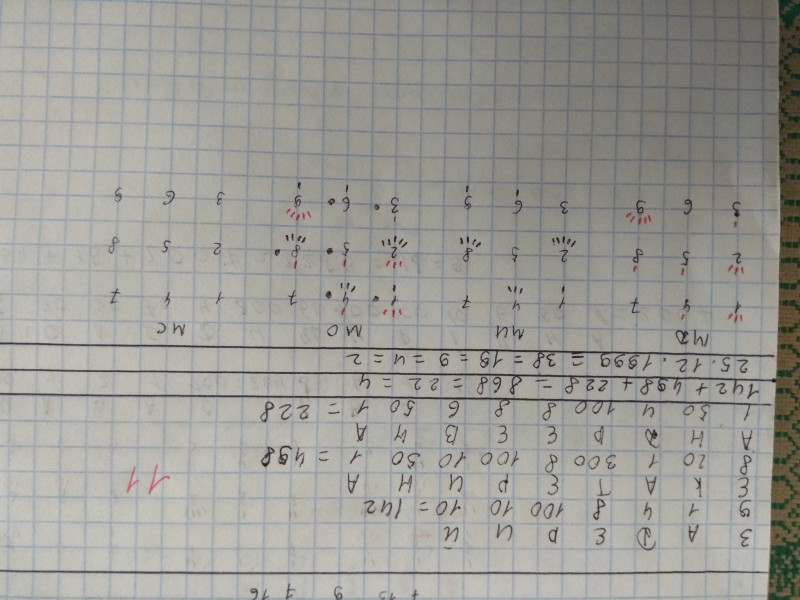 З А Д Е Р И Й
9 1 4 8 100 10 10 = 142
Е К А Т Е Р И Н А
8 20 1 300 8 100 10 50 1 = 498
11
А Н Д Р Е Е В Н А
1 50 4 100 8 8 6 50 1 = 228
142 + 498 + 228 = 868 = 22 = 4
25.12.1999 = 38 = 19 = 9 = 4 = 2
МД МИ МО МС
1 4 7 1 4 7 1 4 7 1 4 7
2 5 8 2 5 8 2 5 8 2 5 8
3 6 9 3 6 9 3 6 9 3 6 9